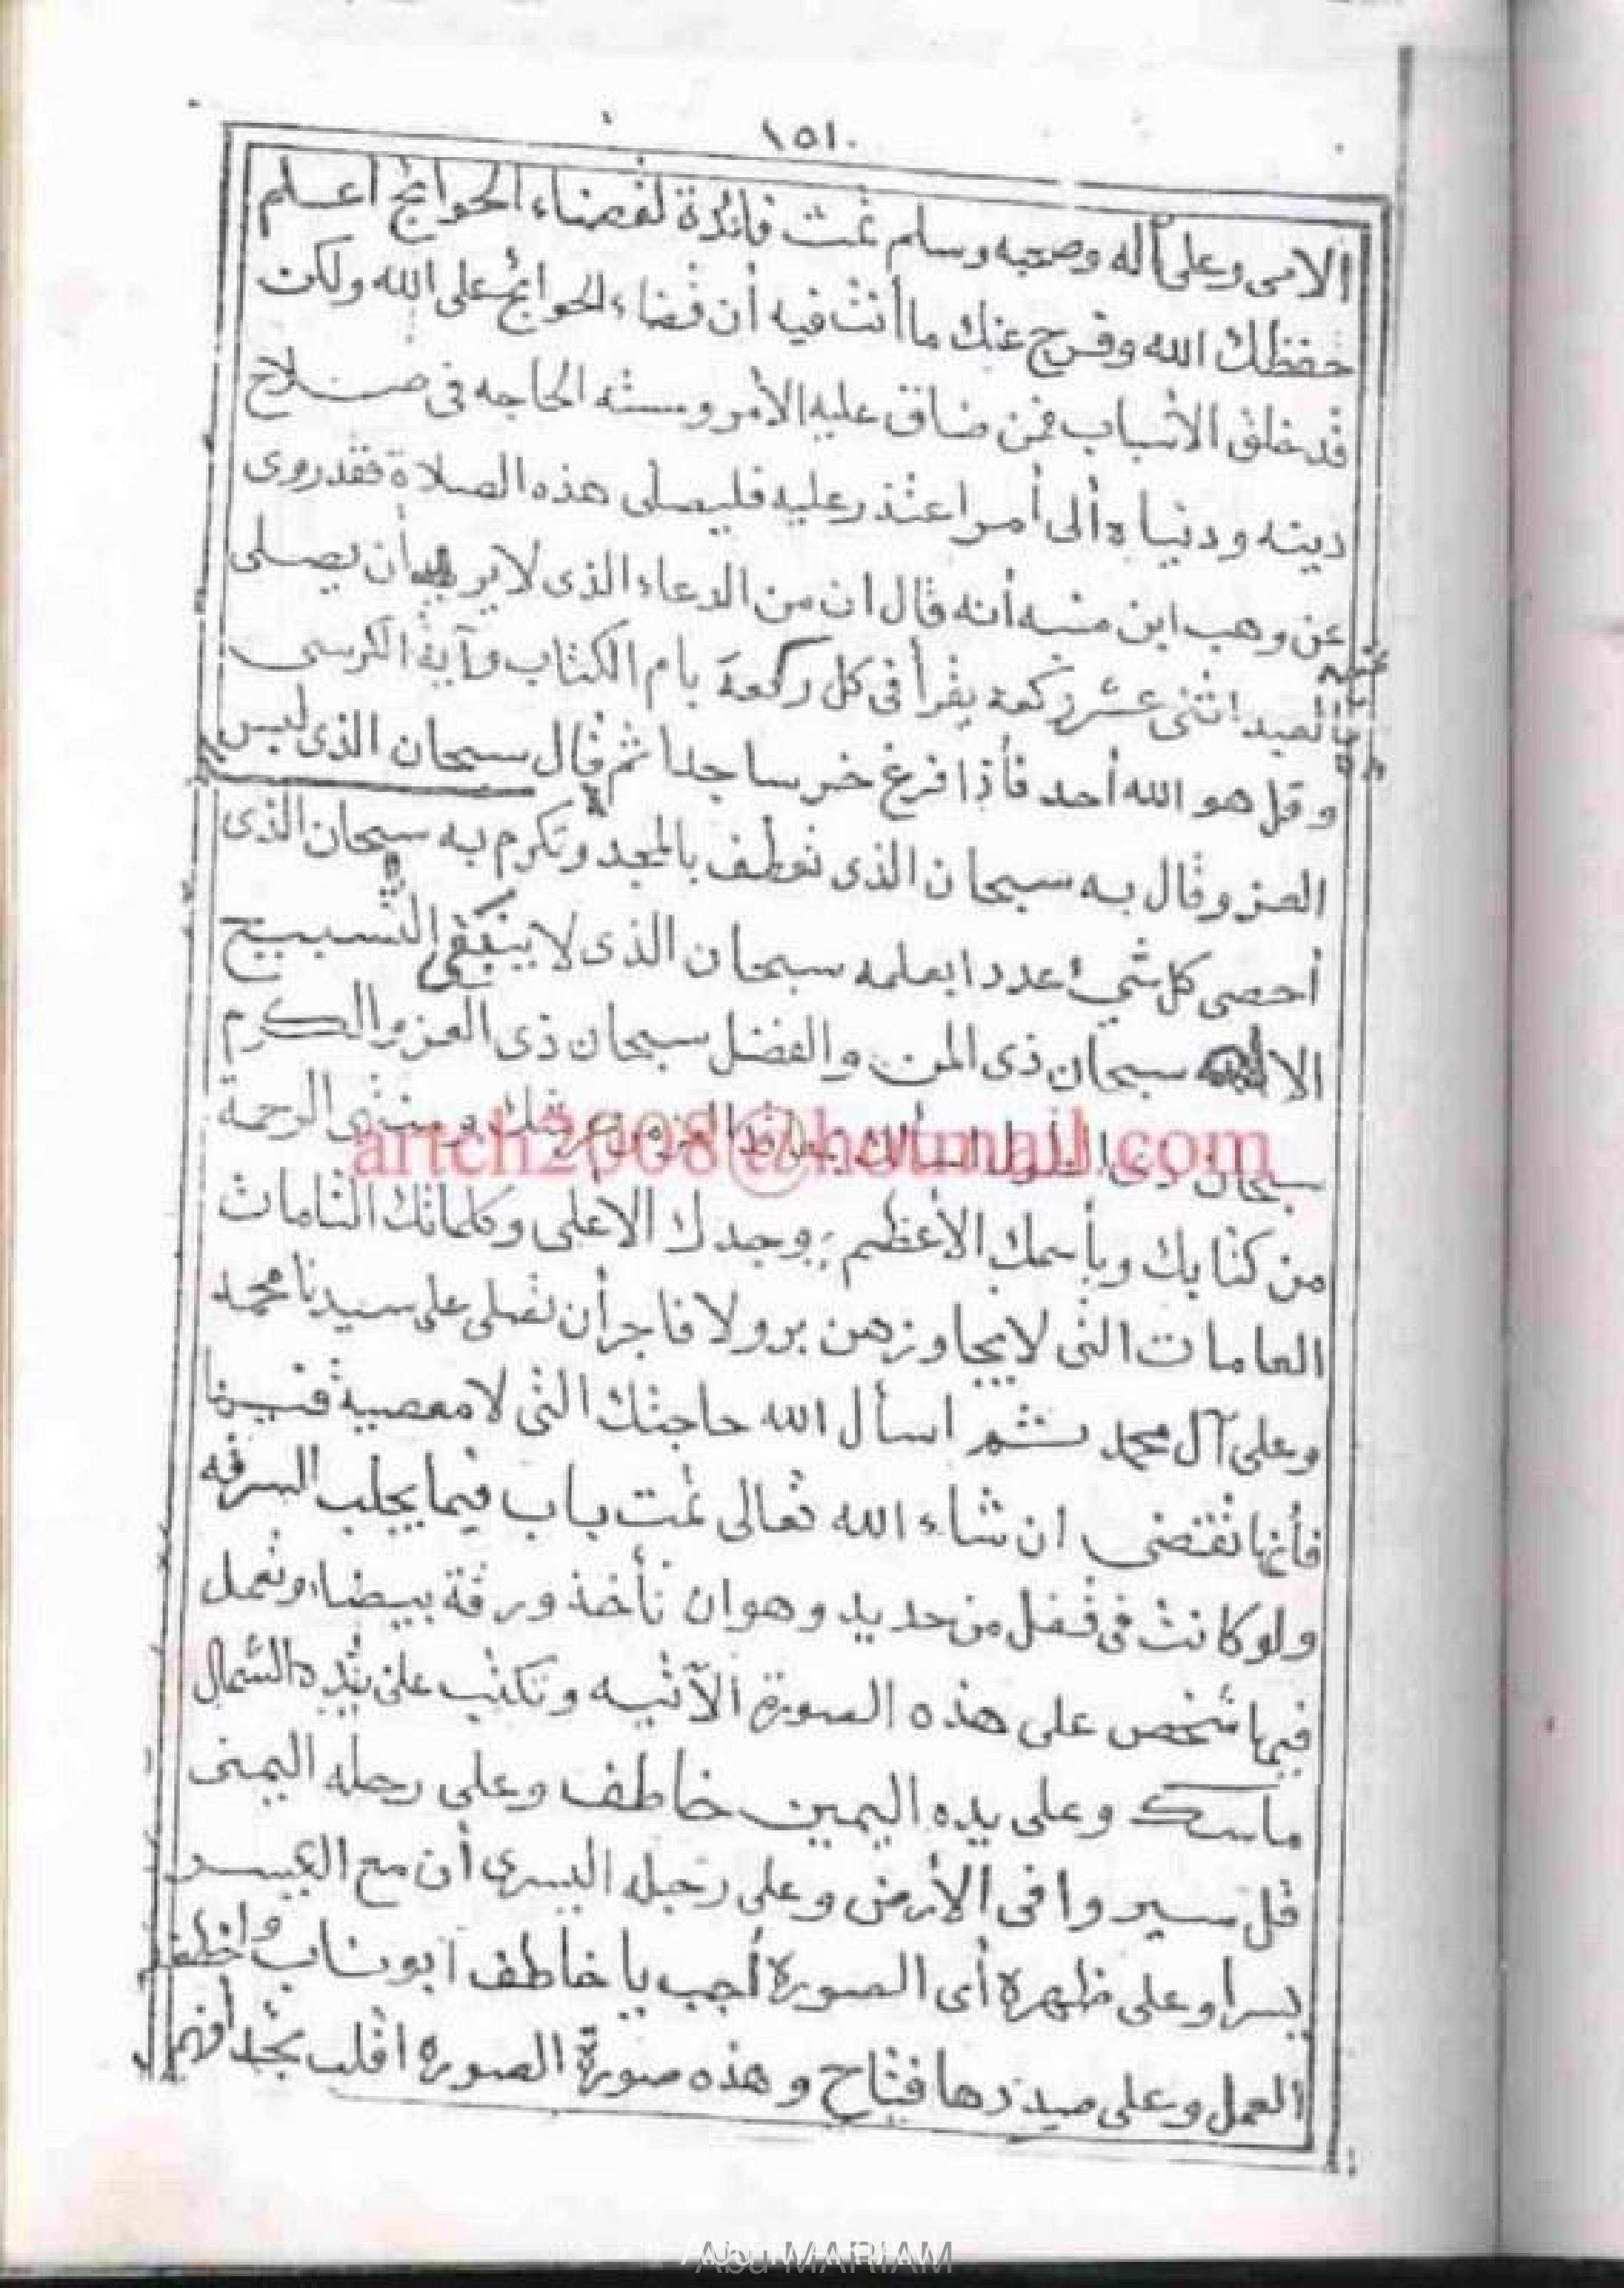 ١٥١
الامى وعلى آله وصحبه وسلم تمت فائدة لقضاء الحوائج أعلم
حفظك الله وفرج عنك ما أنت فيه أن قضاء الحوائج على الله ولكن
قد خلق الأسباب فمن ضاق عليه الأمر ومسته الحاجه فى صلاح
دينه ودنياه ألى أمرا عتذر عليه فليصلى هذه الصلاة فقد روى
عن وهب ابن منبه أنه قال ان من الدعاء الذى لا يرد أن يصلى
العبد اثنى عشر ركعة يقرأ فى كل ركعة بام الكتاب وآية الكرسى
وقل هو الله أحد فأذا فرغ خر ساجدا ثم قال سبحان الذى لبس
العز وقال به سبحان الذى تعطف بالمجد وتكرم به سبحان الذى
أحصى كل شيء عددا بعلمه سبحان الذى لا ينبغى التسبيح
الا سبحان ذى المن والفضل سبحان ذى العز والكرم
سبحان ذى الرحمة
من كتابك وبأسمك الأعظم وجدك الاعلى وكلماتك التامات
العامات التى لا يجاوزهن بر ولا فاجر أن تصلى على سيدنا محمد
وعلى آل محمد ثم اسأل الله حاجتك التى لا معصية فيها
فأنها تقتضى ان شاء الله تعالى تمت باب فيما يجلب السرقه
ولو كانت فى قفل من حديد وهو ان تأخذ ورقة بيضاء وتعمل
فيها شخص على هذه الصورة الآتيه وتكتب على يده الشمال
ماسك وعلى يده اليمين خاطف وعلى رجله اليمنى
قل سيروا فى الأرض وعلى رجله اليسرى أن مع العسر
يسرا وعلى ظهره أى الصورة أجب يا خاطف ابوناب واخطف
العمل وعلى صدرها فتاح وهذه صورة الصورة اقلب تجد أفهم
artch2008@hotmail.com
Abu MARIAM